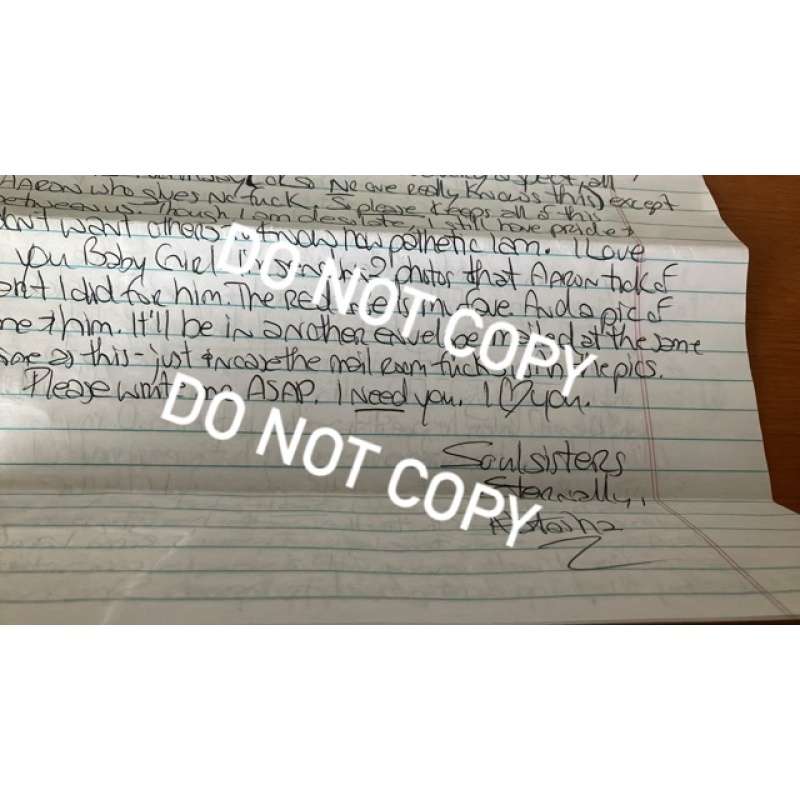 AARON who gives No fuck. No one really knows this except
between us. Though I am desolate, I still have pride &
don't want others to know how pathetic I am. I Love
you Baby Girl. 2 photos that AARON
I did for him. The Red is my fave. And a pic of
me & him. It'll be in another envelope mailed at the same
as this - just incase the mail room fuck the pics.
Please write me ASAP. I Need you. I ♡ you.
Soulsisters
Eternally,
Natasha
DO NOT COPY
DO NOT COPY